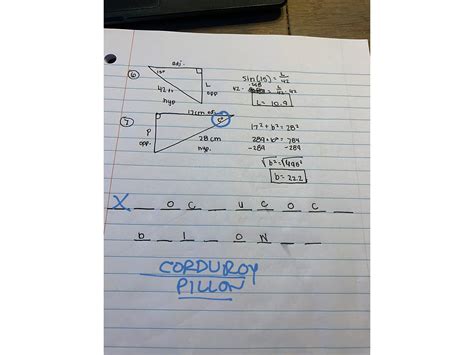 6
adj.
15°
42 ft
hyp
L
opp
sin(15) = L/42
42 · .26 = L/42 · 42
L = 10.9
7
17cm adj.
P
opp.
28 cm
hyp.
17² + b² = 28²
289 + b² = 784
-289 -289
√b² = √495
b = 22.2
X _ O C _ U C O C _
b _ I _ O N _ _
CORDUROY
PILLON